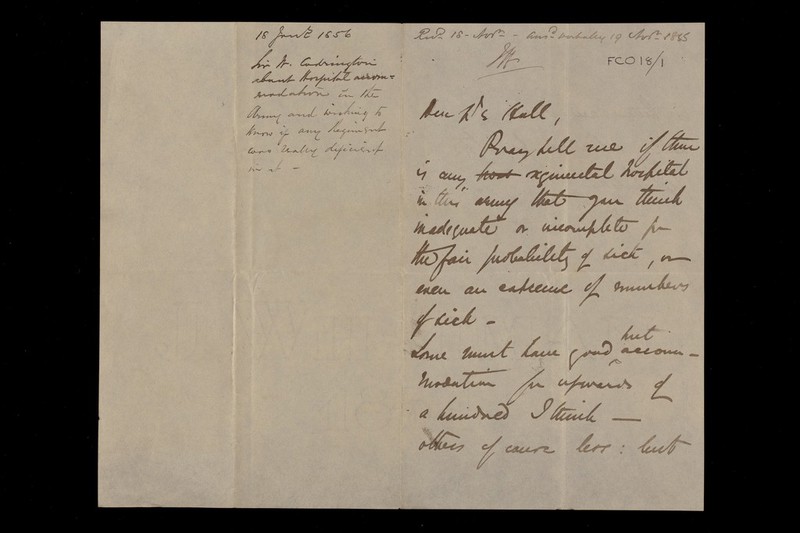 18 Jany 1856
Sir W. Codrington
about Hospital accom=
modation in the
Army and wishing to
know if any Regiment
was really deficient
in it -
Recd 18 - Novr - ansd 19 Novr 1855
FCO18/1
Dear Dr Hall,
Pray tell me if there
is any host regimental hospital
in this army that you think
inadequate or incomplete for
the fair probability of sick, or
even an extreme of numbers
of sick -
hut
Some must have good accom-
modation for upwards of
a hundred I think -
others of course less: but